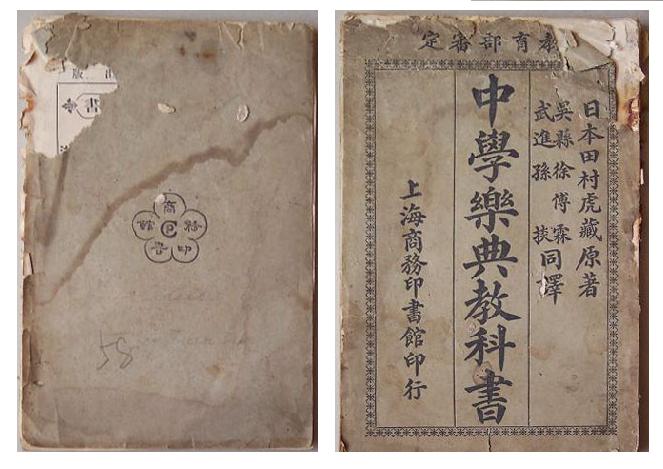 出版
書
商務印書館
58
教育部審定
日本田村虎藏原著
吳縣徐傅霖
武進孫掞
同譯
中學樂典教科書
上海商務印書館印行